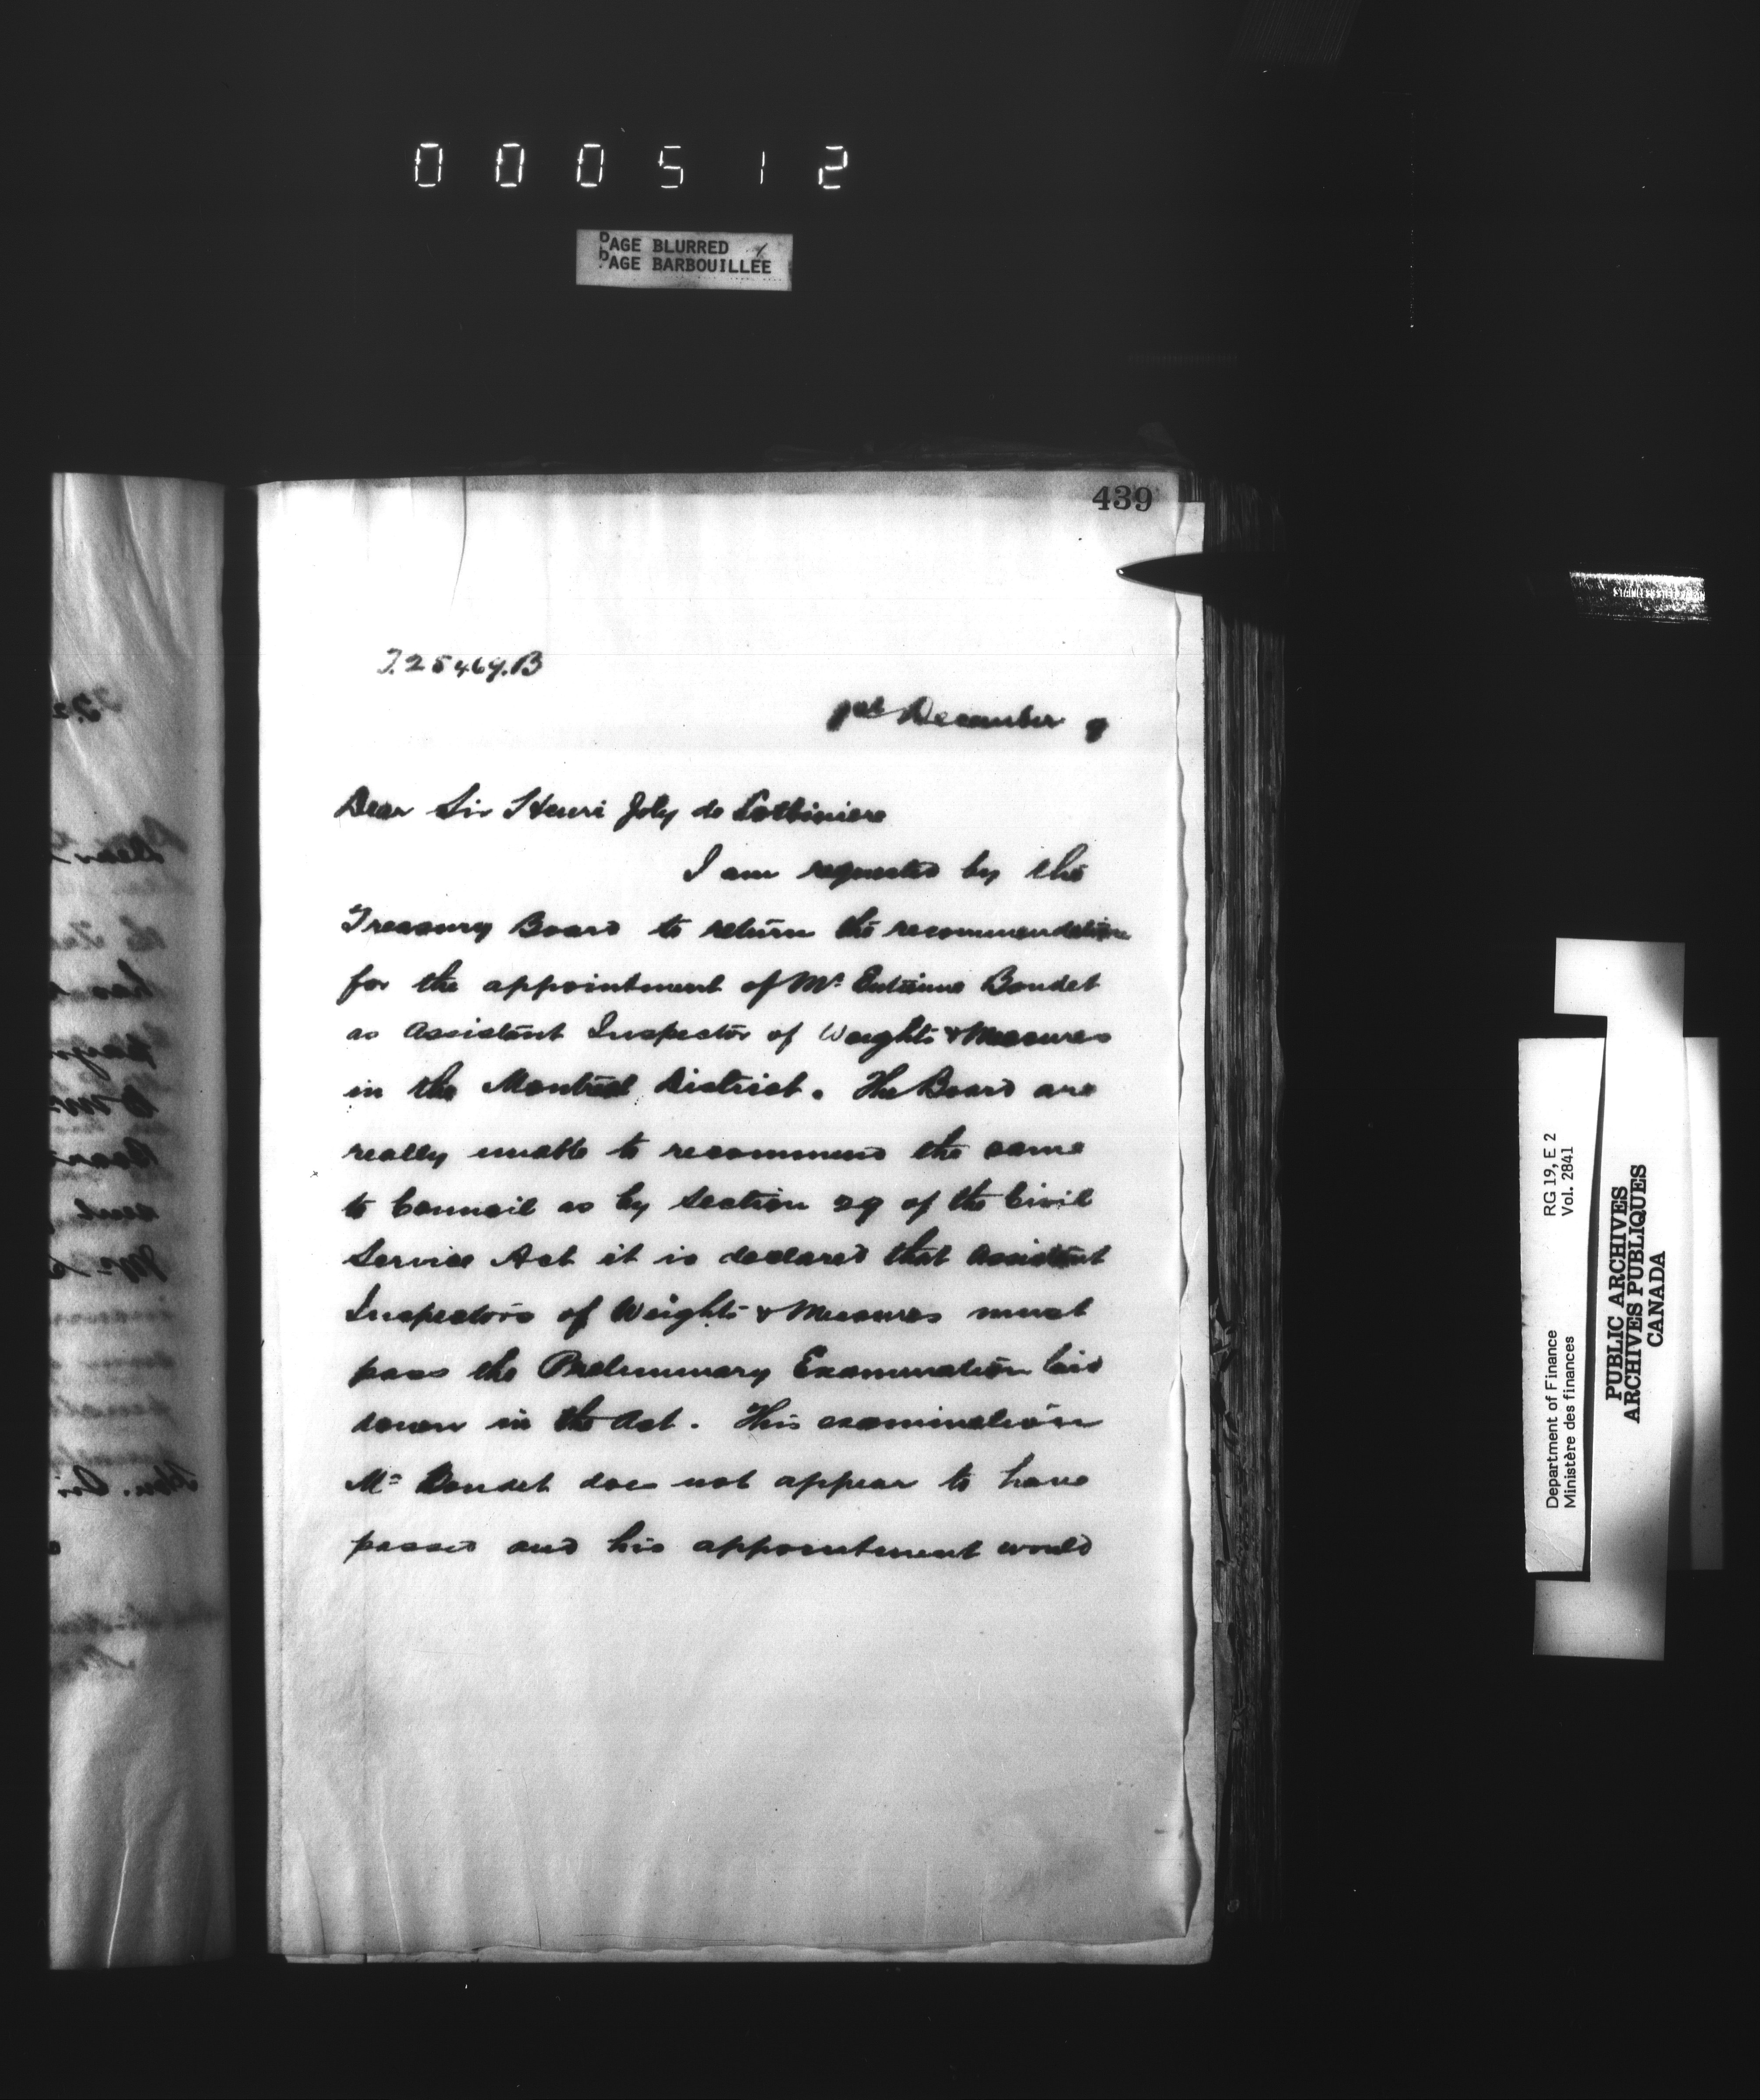 000512
PAGE BLURRED
PAGE BARBOUILLÉE
439
1st December 8
Dear Sir Henri Joly de Lotbiniere
I am requested by the
Treasury Board to return the recommendation
for the appointment of Mr Boudet
as Assistant Inspector of Weights & Measures
in the Montreal District. The Board are
really unable to recommend the same
to Council as by Section 29 of the Civil
Service Act it is declared that Assistant
Inspectors of Weights & Measures must
pass the Preliminary Examination laid
down in the Act. This examination
Mr Boudet does not appear to have
passed and his appointment would
Department of Finance RG 19, E 2
Ministère des finances Vol. 2841
PUBLIC ARCHIVES
ARCHIVES PUBLIQUES
CANADA